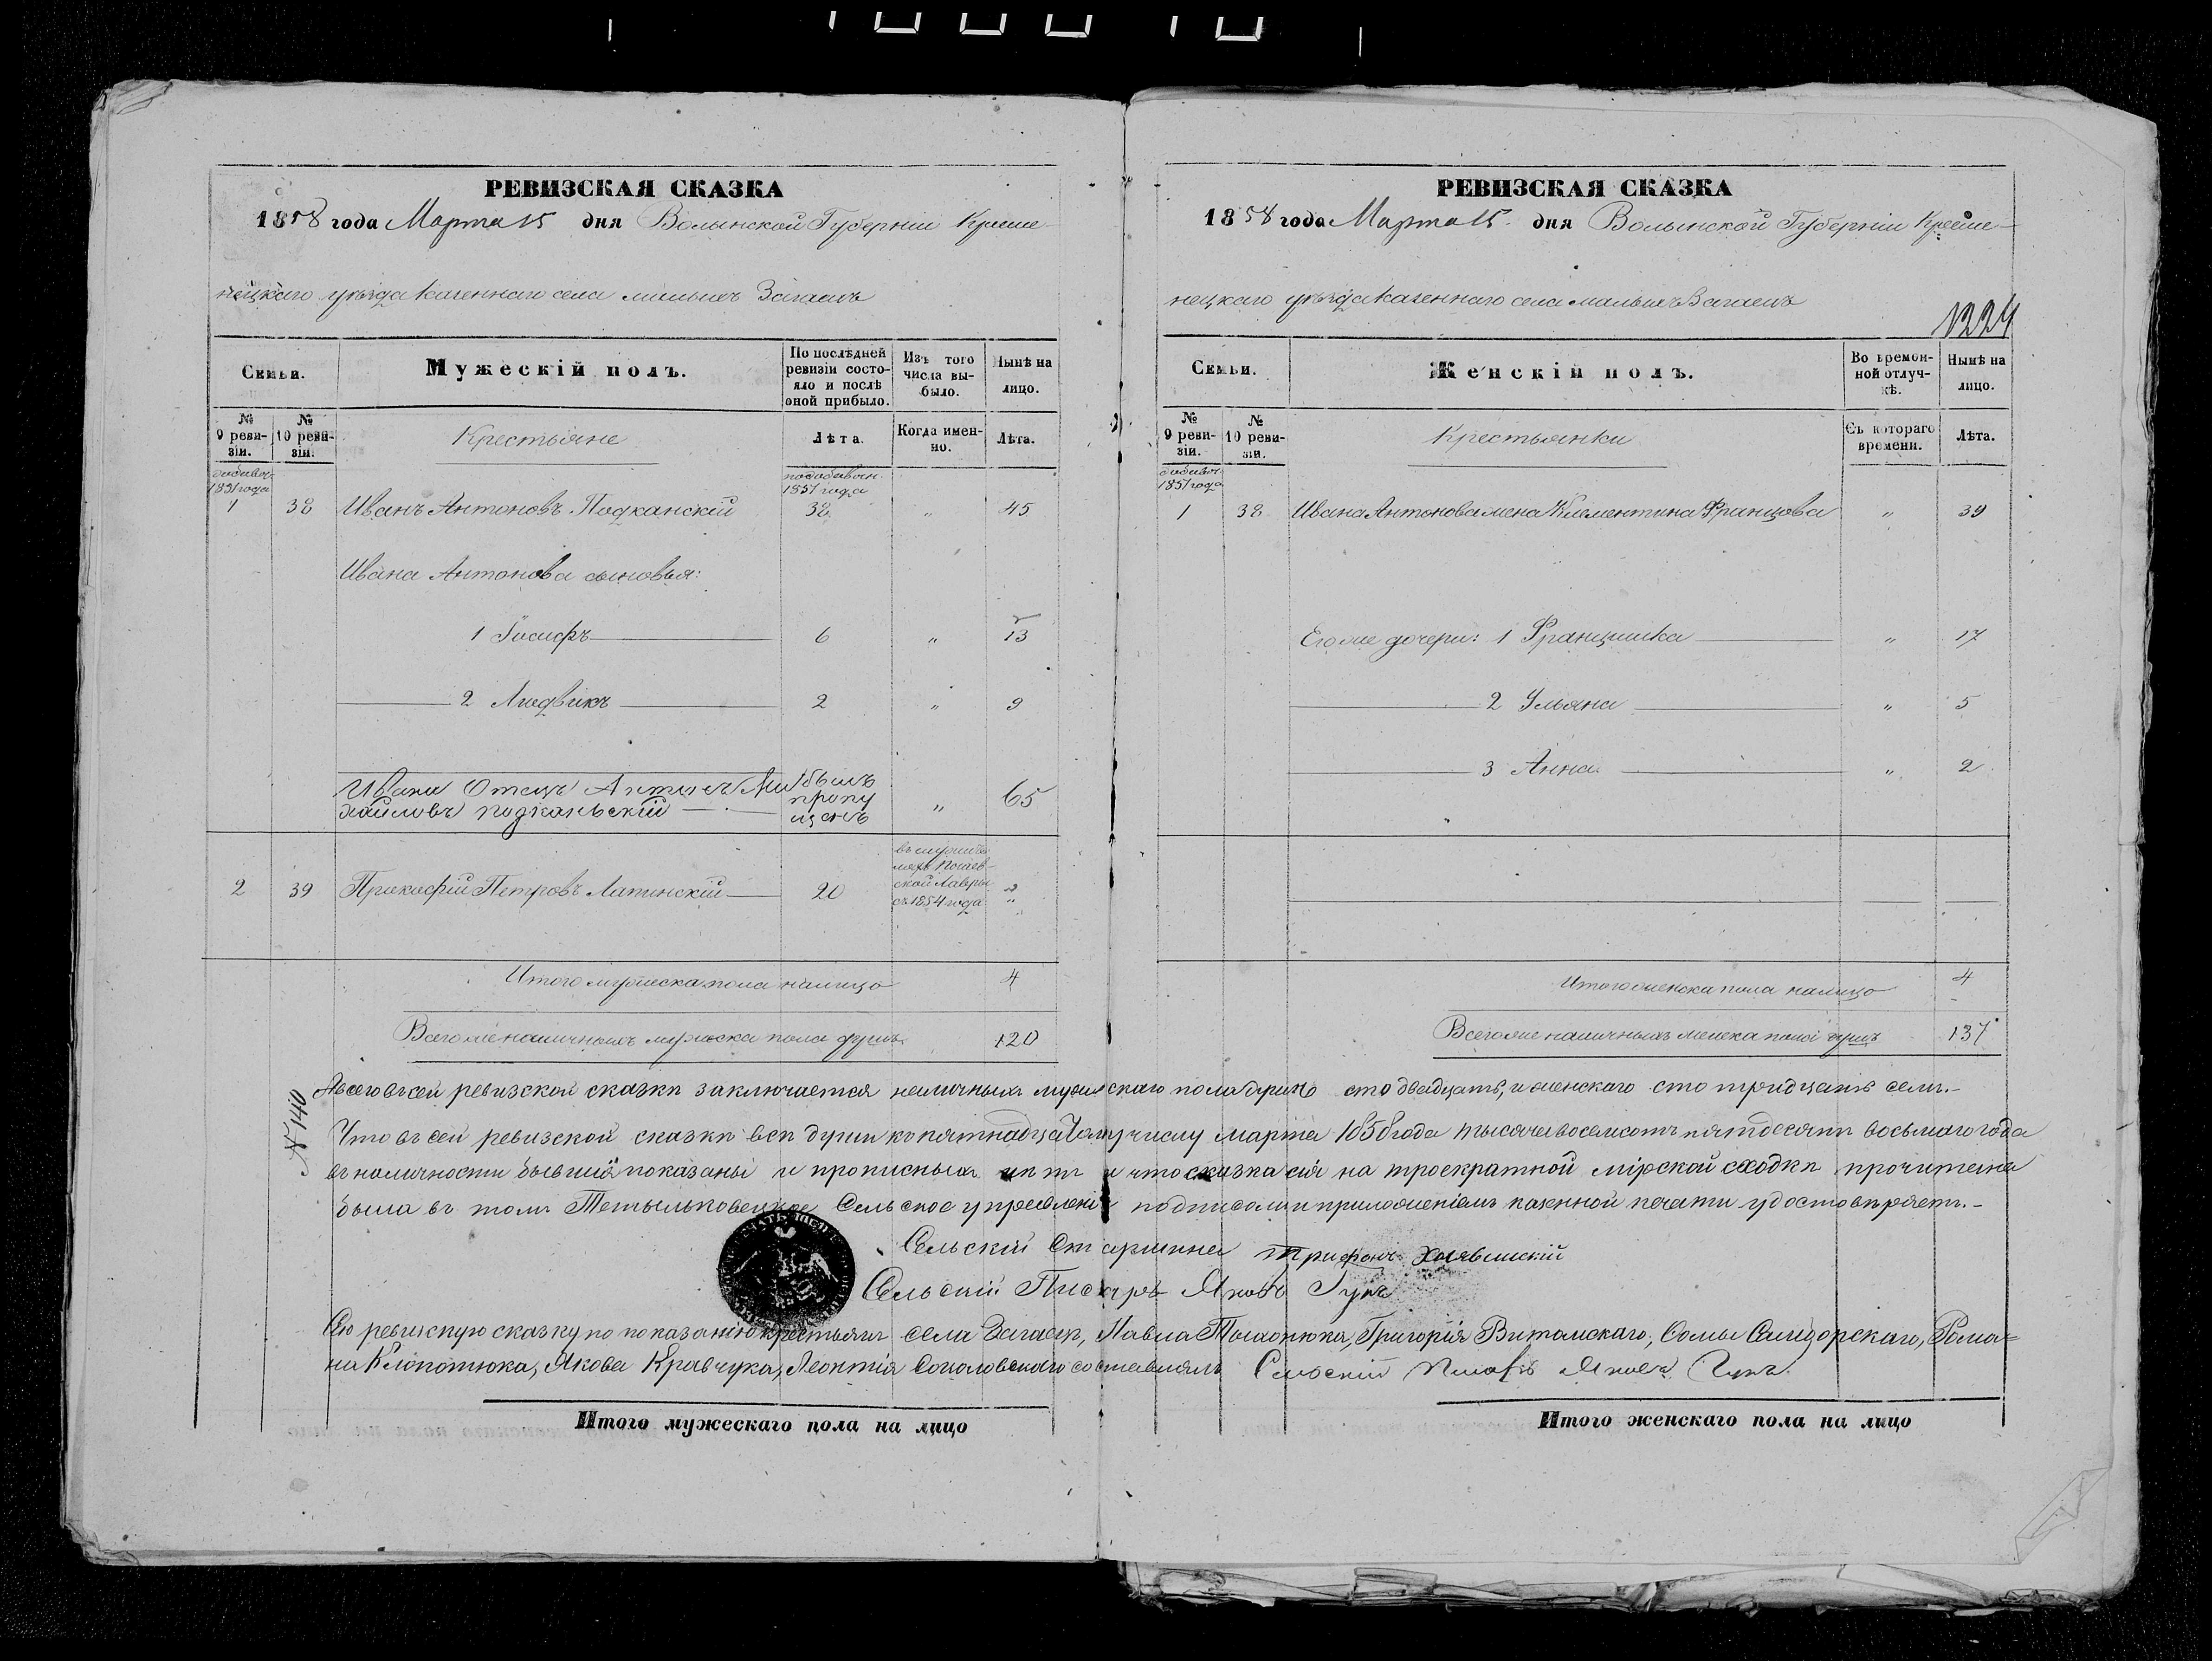 РЕВИЗСКАЯ СКАЗКА
1858 года Марта 15 дня Волынской Губерніи Креме-
нецкаго уѣзда Казеннаго села малыхъ Загаецъ
Семьи.
Мужескій полъ.
По послѣдней ревизіи состо-
яло и послѣ
оной прибыло.
Изъ того
числа вы-
было.
Нынѣ на
лицо.
№
9 реви-
зіи.
№
10 реви-
зіи.
Крестьяне
Лѣта.
Когда имен-
но.
Лѣта.
добавоч.
1851 года
по добавоч.
1851 года
1 38 Иванъ Антоновъ Подканскій 38 „ 45
Ивана Антонова сыновья:
1 Іосифъ 6 „ 13
2 Людвикъ 2 „ 9
Ивана Отецъ Антонъ Ми
хайловъ подканьскій
былъ
пропу
щенъ
„ 65
2 39 Прокофій Петровъ Латинскій 20
въ служите
ляхъ Почаев-
ской Лавры
съ 1854 года
„
Итого мужеска пола налицо 4
Всего же наличныхъ мужеска пола душъ 120
РЕВИЗСКАЯ СКАЗКА
1858 года Марта 15 дня Волынской Губерніи Креме-
нецкаго уѣзда Казеннаго села малыхъ Загаецъ
1224
Семьи.
Женскій полъ.
Во времен-
ной отлуч-
кѣ.
Нынѣ на
лицо.
№
9 реви-
зіи.
№
10 реви-
зіи.
Крестьянки
Съ котораго
времени.
Лѣта.
добавоч.
1851 года
1 38 Ивана Антонова жена Клементина Францова „ 39
Его же дочери: 1 Францишка „ 17
2 Ульяна „ 5
3 Анна „ 2
Итого женска пола налицо 4
Всего же наличныхъ женска пола душъ 137
№ 140
А всего въ сей ревизской сказкѣ заключается наличныхъ мужескаго пола душъ сто двадцать, и женскаго сто тридцать семь.-
Что въ сей ревизской сказкѣ всѣ души къ пятнадцатому числу марта 1858 года тысяча восемсотъ пятдесятъ восьмаго года
въ наличности бывшія показаны и прописныхъ нѣтъ и что сказка сія на троекратной мірской сходкѣ прочитана
была въ томъ Тетыльковецкое Сельское управленіе подписомъ и приложеніемъ казенной печати удостовѣряетъ.-
Сельскій Старшина Трифонъ
Сельскій Писарь Яковъ Гукъ
Сію ревизскую сказку по показанію крестьянъ села Загаецъ, Павла Григорія Витамскаго, Рома-
на Клопотюка, Якова Кравчука, Леонтія Соколовскаго составлялъ Сельскій Писарь Яковъ Гукъ
Итого мужескаго пола на лицо
Итого женскаго пола на лицо